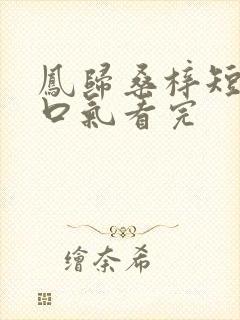 鳳歸桑梓短
口氣看完
繪奈希